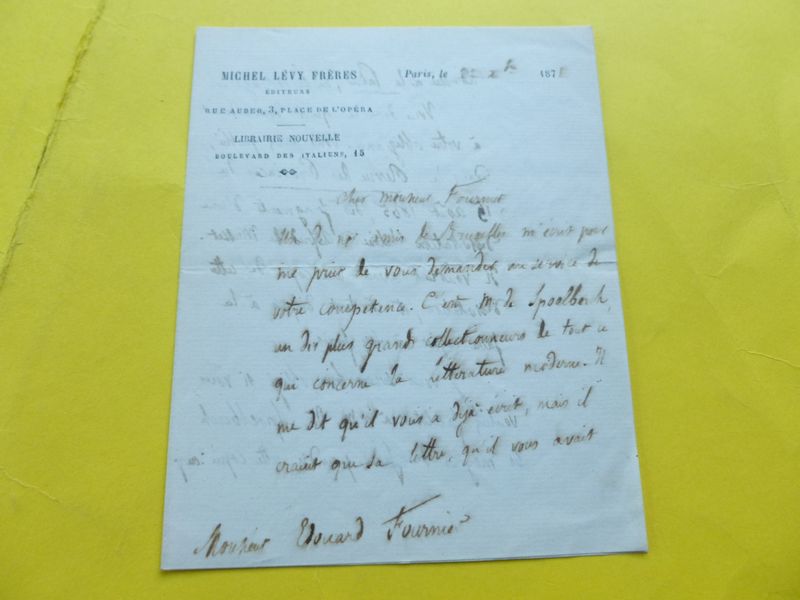 MICHEL LÉVY FRÈRES
ÉDITEURS
RUE AUBER, 3, PLACE DE L'OPÉRA
LIBRAIRIE NOUVELLE
BOULEVARD DES ITALIENS, 15
Paris, le 187
Cher Monsieur Fournier
Un de nos amis de Bruxelles m'écrit pour
me prier de vous demander un service de
votre compétence. C'est Mr de Spoelberch,
un des plus grands collectionneurs de tout ce
qui concerne la littérature moderne. Il
me dit qu'il vous a déjà écrit, mais il
craint que sa lettre, qu'il vous avait
Monsieur Edouard Fournier